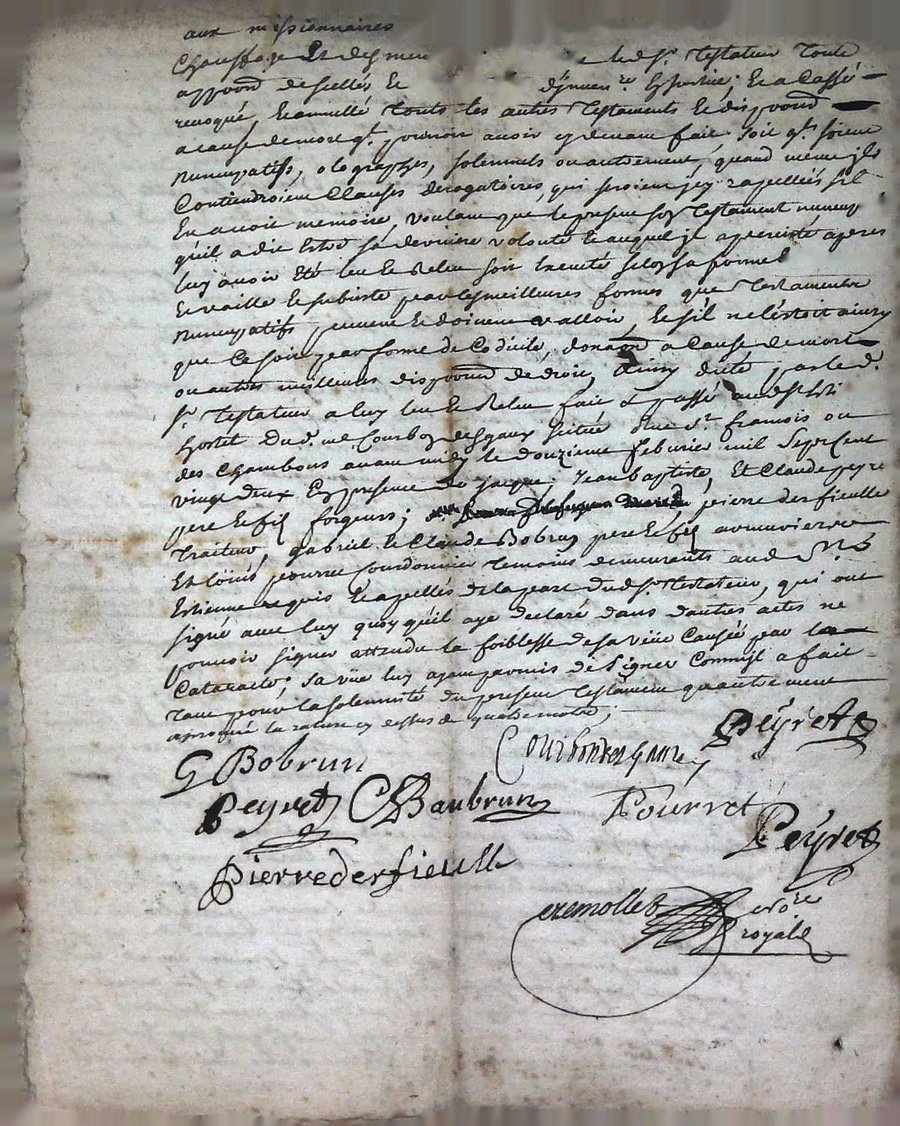 aux missionnaires
Chauffage Et desmeu le d. Sr. Testateur Toute
appond. descellés Et d'Jnven.re En justice; Et a Cassé
revoqué, Et annullé Touts les autres Testaments Et dispoond
a cause de mort qt. pourroit avoir cy devant fait, soit qt. soient
Nuncupatifs, olographes, solemnels ou autrement, quand meme jls
Contiendroient Clauses derogatoires, qui seroient jcy rapellées sil
En avoit memoire, voulant que le present soy Testament nuncup
qu'il a dit Estre sa derniere volonté Et auquel jl a persisté apres
luy avoir Eté leu Et Releu soit Executé selon sa forme
Et vaille Et subsiste par les meilleures formes que Testaments
Nuncupatifs peuvent Et doivent valloir, Et sil ne l'estoit ainsy
que Ce soit par forme de Codicile, donnaon a Cause de mort
ou autres meilleures dispoond de droit, Ainsy dicté par le d.
Sr. Testateur a luy leu Et Releu fait Et passé aud. St.
hostel Dud. me. Courbon desgaux située Rue St. francois ou
des Chambons avant midy le douzieme febvrier mil Sept Cent
vingt deux En presence de jacque, Jean baptiste, Et Claude peyre
pere Et fils forgeurs; pierre derfieulle
Traiteur, Gabriel Et Claude Bobrun pere Et fils armuriers
Et louis pourret Cordonnier Temoins demeurants aud. St.
Estienne requis Et apellés de la part Dud. Sr. Testateur, qui ont
signé avec luy quoy qu'il aye declaré dans d'autres actes ne
pouvoir signer attendu la foiblesse de sa veüe Causée par la
Cataracte; sa vüe luy ayant permis de Signer Comme jl a fait
Tant pour la solemnité du present Testament qu'autrement
approuvé la rature cy dessus de quatre mots;
G Bobrun Courbondesgaux Peÿret
Peyret C Baubrun Pourret
Peÿret
Pierre derfieulle
cremollet
royal